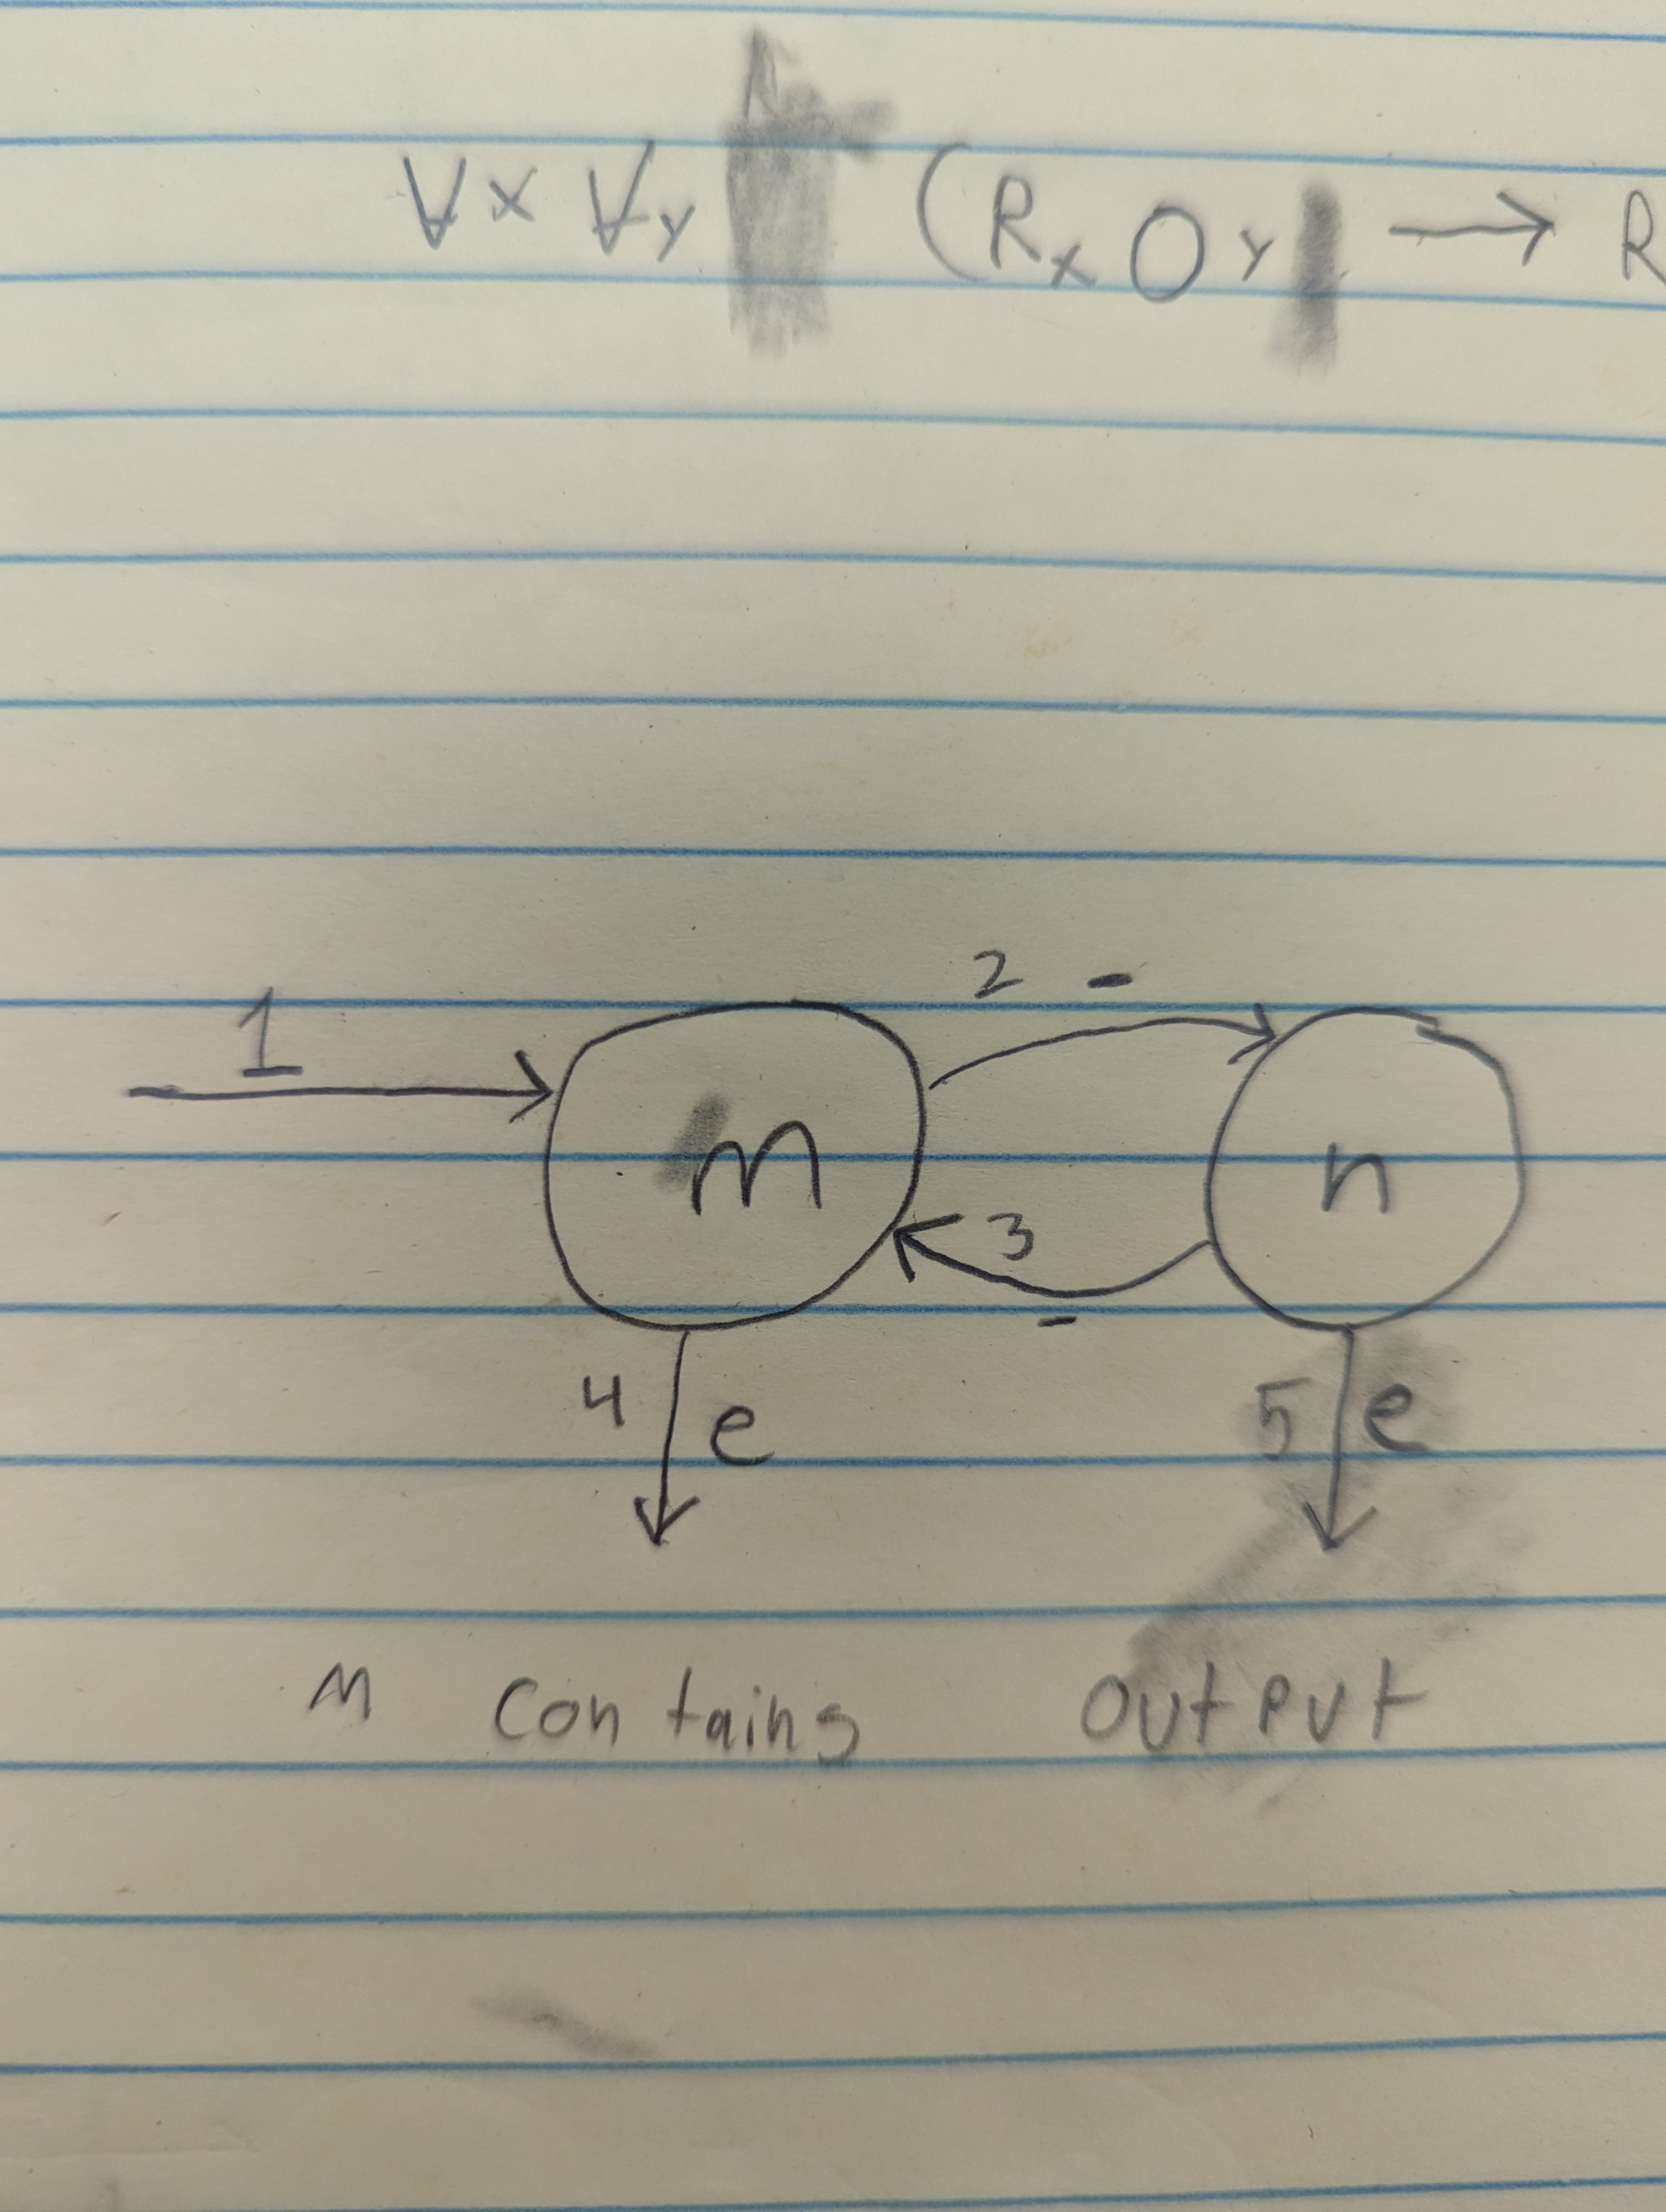 ∀x ∀y (Rx Oy → R
1
2 -
m n
3
-
4 e 5 e
M contains output